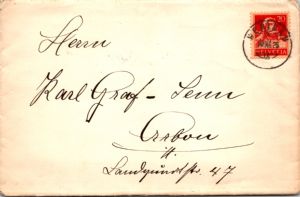 10
HELVETIA
Herrn
Karl Graf-Senn
Arbon
Landquartstr. 47